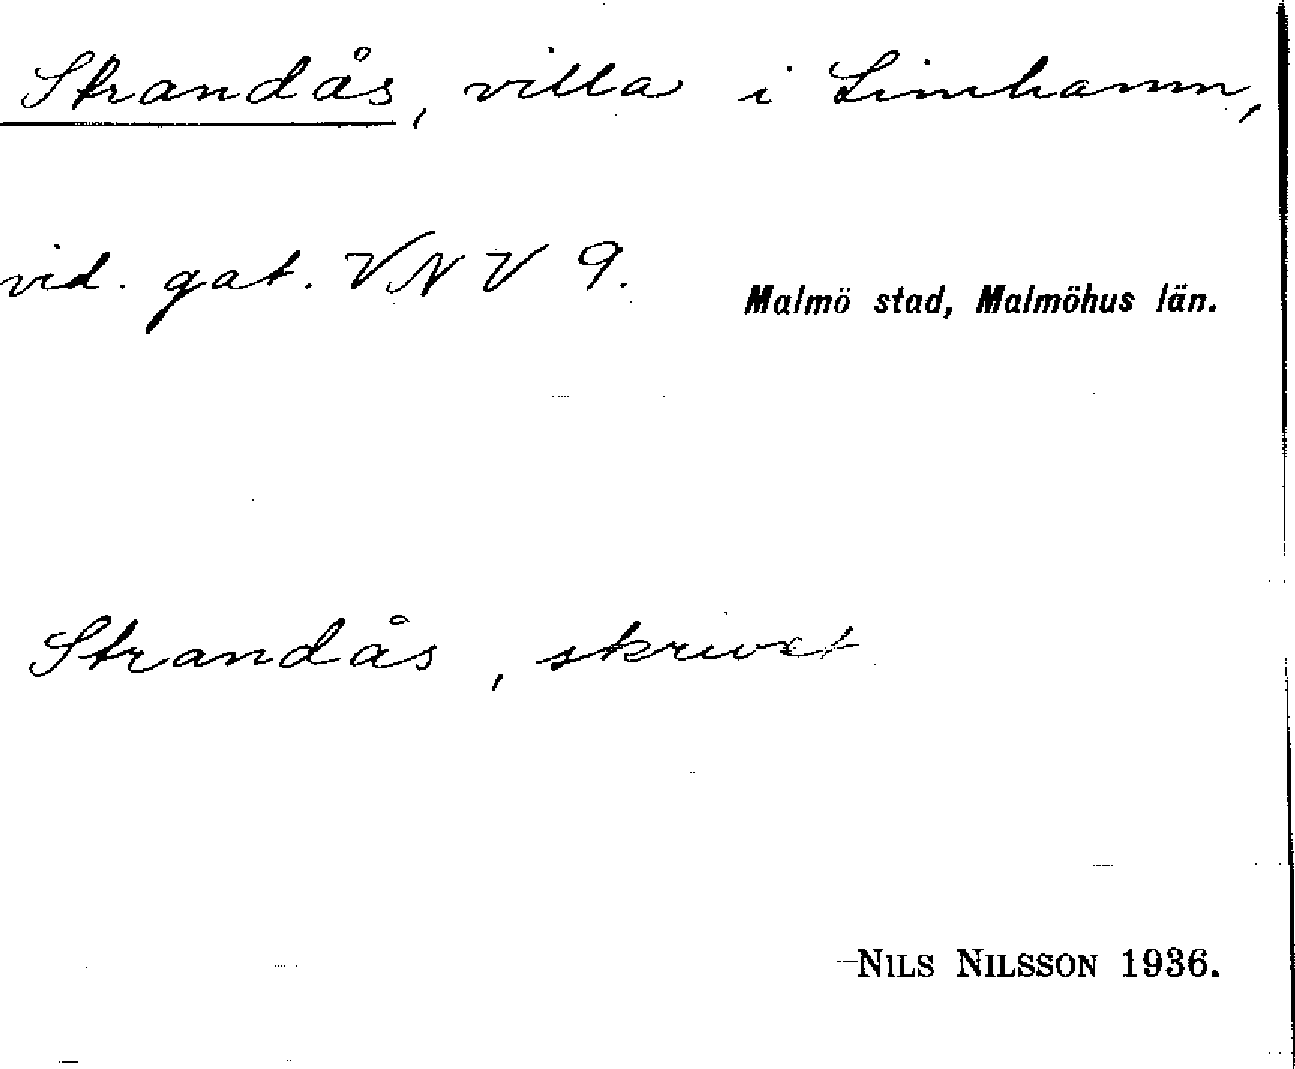 Strandås, villa i Limhamn,
vid. gat. VNV 9.
Malmö stad, Malmöhus län.
Strandås, skrivet
NILS NILSSON 1936.